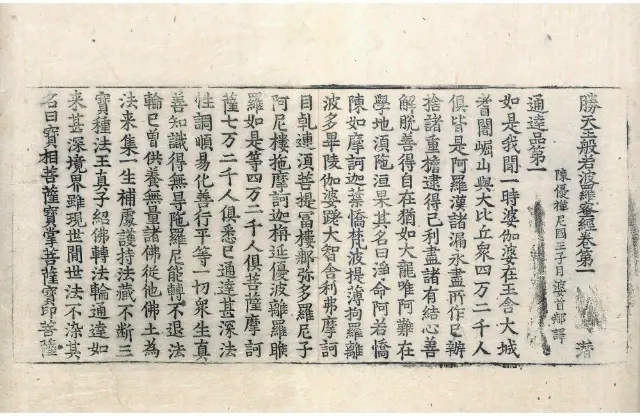 勝天王般若波羅蜜經卷第一 潜
陳優禪尼國王子月婆首那譯
通達品第一
如是我聞一時婆伽婆在王舍大城
耆闍崛山與大比丘衆四万二千人
俱皆是阿羅漢諸漏永盡所作已辦
捨諸重擔逮得己利盡諸有結心善
解脫善得自在猶如大龍唯阿難在
學地須陁洹果其名曰淨命阿若憍
陳如摩訶迦葉憍梵波提薄拘羅離
波多畢陵伽婆蹉大智舍利弗摩訶
目乹連湏菩提冨樓那弥多羅尼子
阿尼樓拖摩訶迦栴延優波離羅睺
羅如是等四万二千人俱菩薩摩訶
薩七万二千人俱悉已通達甚深法
性調順易化善行平等一切衆生真
善知識得無㝵陁羅尼能轉不退法
輪已曽供養無量諸佛從他佛土為
法来集一生補處護持法藏不斷三
寶種法王真子紹佛轉法輪通達如
来甚深境界雖現世間世法不染其
名曰寶相菩薩寶掌菩薩寶印菩薩